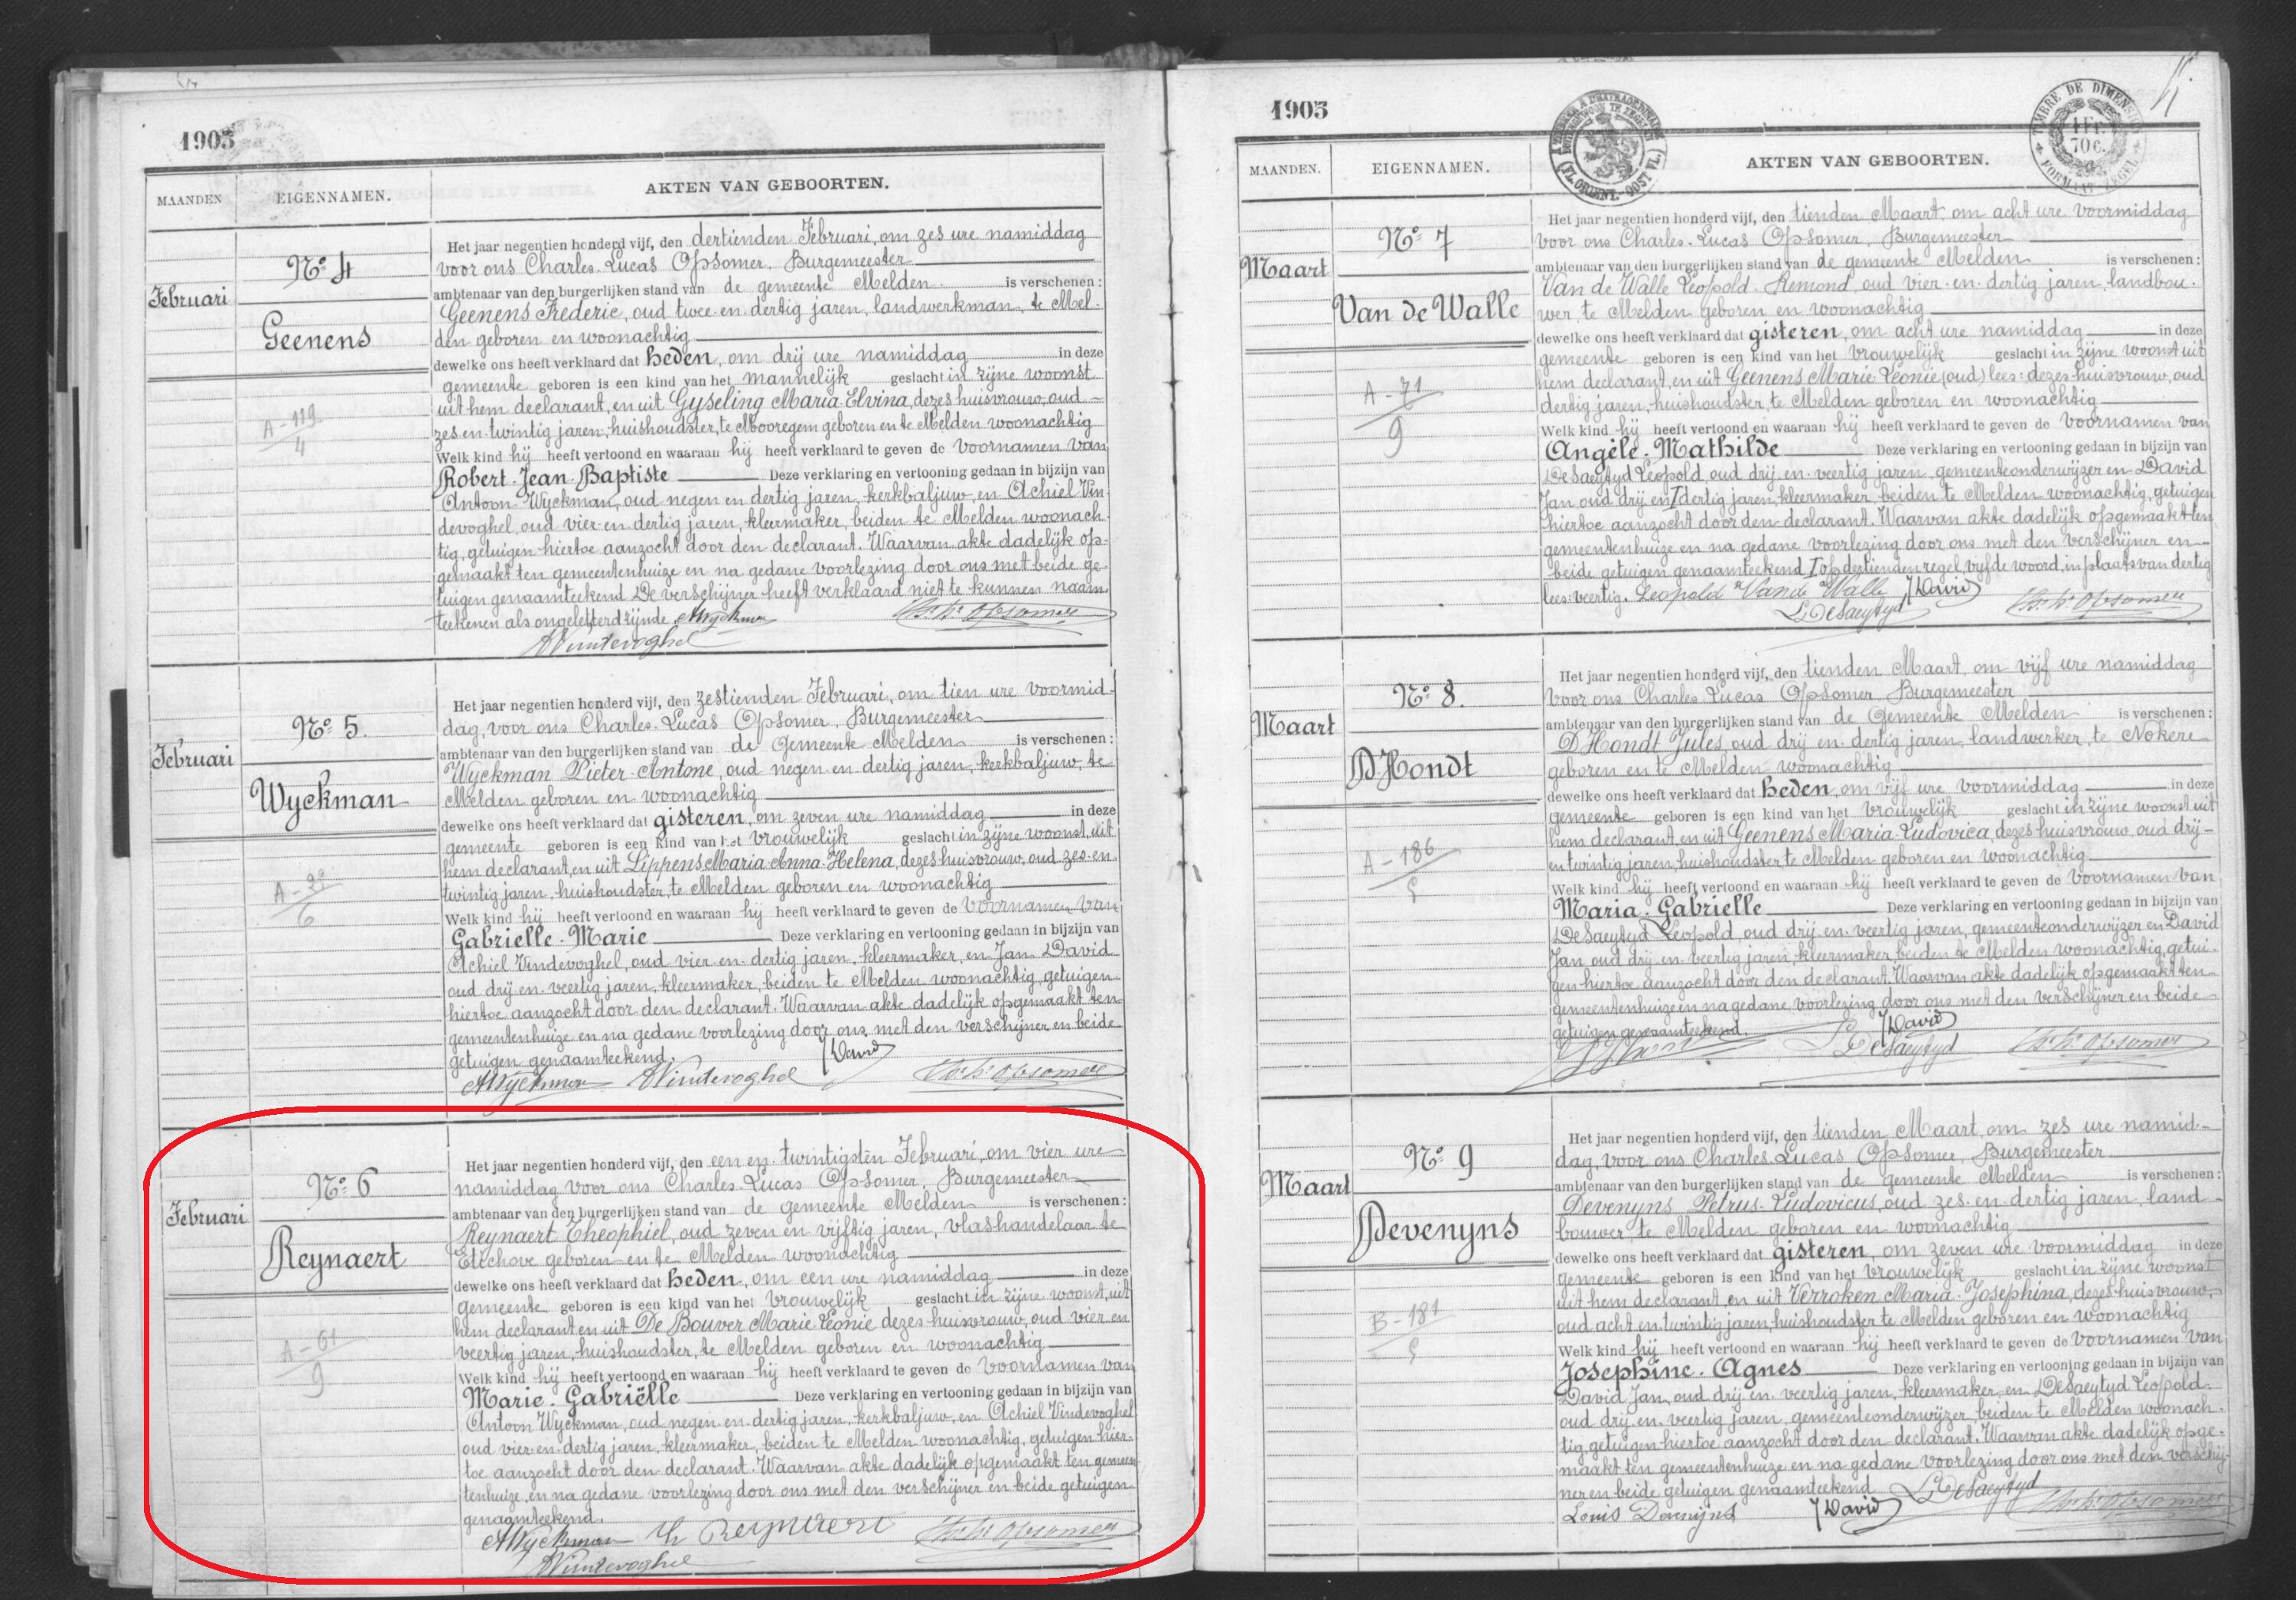 1905
MAANDEN
EIGENNAMEN.
AKTEN VAN GEBOORTEN.
Februari
N° 4
Geenens
A-119
4
Het jaar negentien honderd vijf, den dertienden Februari, om zes ure namiddag
voor ons Charles-Lucas Opsomer, Burgemeester
ambtenaar van den burgerlijken stand van de gemeente Melden is verschenen:
Geenens Frederic, oud twee-en-dertig jaren, landwerkman, te Mel-
den geboren en woonachtig
dewelke ons heeft verklaard dat heden, om drij ure namiddag in deze
gemeente geboren is een kind van het mannelijk geslacht in zijne woonst
uit hem declarant, en uit Gyseling Maria Elvina, dezes huisvrouw, oud
zes-en-twintig jaren, huishoudster, te Mooregem geboren en te Melden woonachtig
Welk kind hij heeft vertoond en waaraan hij heeft verklaard te geven de voornamen van
Robert-Jean-Baptiste Deze verklaring en vertooning gedaan in bijzijn van
Antoon Wyckman, oud negen en dertig jaren, kerkbaljuw, en Achiel Vin-
devoghel, oud vier-en-dertig jaren, kleermaker, beiden te Melden woonach-
tig, getuigen hiertoe aanzocht door den declarant. Waarvan akte dadelijk op-
gemaakt ten gemeentenhuize en na gedane voorlezing door ons met beide ge-
tuigen genaamteekend De verschijner heeft verklaard niet te kunnen naam-
teekenen als ongeletterd zijnde. AWyckman Ch. L. Opsomer
AVindevoghel
Februari
N° 5.
Wyckman
A-
6
Het jaar negentien honderd vijf, den zestienden Februari, om tien ure voormid-
dag, voor ons Charles-Lucas Opsomer, Burgemeester
ambtenaar van den burgerlijken stand van de Gemeente Melden is verschenen:
Wyckman Pieter-Antone, oud negen-en-dertig jaren, kerkbaljuw, te
Melden geboren en woonachtig
dewelke ons heeft verklaard dat gisteren, om zeven ure namiddag in deze
gemeente geboren is een kind van het vrouwelijk geslacht in zijne woonst, uit
hem declarant, en uit Lippens Maria-Anna-Helena, dezes huisvrouw, oud zes-en-
twintig jaren, huishoudster, te Melden geboren en woonachtig
Welk kind hij heeft vertoond en waaraan hij heeft verklaard te geven de voornamen van
Gabrielle-Marie Deze verklaring en vertooning gedaan in bijzijn van
Achiel Vindevoghel, oud vier-en-dertig jaren, kleermaker, en Jan David
oud drij-en-veertig jaren, kleermaker, beiden te Melden woonachtig, getuigen
hiertoe aanzocht door den declarant. Waarvan akte dadelijk opgemaakt ten
gemeentenhuize en na gedane voorlezing door ons met den verschijner en beide
getuigen genaamteekend. J David
AWyckman AVindevoghel Ch. L. Opsomer
Februari
N° 6
Reynaert
A-61
9
Het jaar negentien honderd vijf, den een en twintigsten Februari, om vier ure
namiddag voor ons Charles-Lucas Opsomer, Burgemeester
ambtenaar van den burgerlijken stand van de gemeente Melden is verschenen:
Reynaert Theophiel, oud zeven en vijftig jaren, vlashandelaar te
Etichove geboren en te Melden woonachtig
dewelke ons heeft verklaard dat heden, om een ure namiddag in deze
gemeente geboren is een kind van het vrouwelijk geslacht in zijne woonst, uit
hem declarant en uit De Bouver Marie Leonie dezes huisvrouw, oud vier en
veertig jaren, huishoudster, te Melden geboren en woonachtig
Welk kind hij heeft vertoond en waaraan hij heeft verklaard te geven de voornamen van
Marie-Gabriëlle Deze verklaring en vertooning gedaan in bijzijn van
Antoon Wyckman, oud negen-en-dertig jaren, kerkbaljuw, en Achiel Vindevoghel
oud vier-en-dertig jaren, kleermaker, beiden te Melden woonachtig, getuigen hier-
toe aanzocht door den declarant. Waarvan akte dadelijk opgemaakt ten gemeen-
tenhuize, en na gedane voorlezing door ons met den verschijner en beide getuigen
genaamteekend.
AWyckman Th Reynaert Ch. L. Opsomer
AVindevoghel
1905
TIMBRE DE DIMENSION
1 FR.
70 C.
FORMAAT-ZEGEL
(FL. ORIENT.-OOST VL.)
MAANDEN.
EIGENNAMEN.
AKTEN VAN GEBOORTEN.
Maart
N° 7
Van de Walle
A-71
9
Het jaar negentien honderd vijf, den tienden Maart, om acht ure voormiddag
voor ons Charles-Lucas Opsomer, Burgemeester
ambtenaar van den burgerlijken stand van de gemeente Melden is verschenen:
Van de Walle Leopold-Remond, oud vier-en-dertig jaren, landbou-
wer, te Melden geboren en woonachtig
dewelke ons heeft verklaard dat gisteren, om acht ure namiddag in deze
gemeente geboren is een kind van het vrouwelijk geslacht in zijne woonst uit
hem declarant, en uit Geenens Marie-Leonie (oud) lees: dezes huisvrouw, oud
dertig jaren, huishoudster, te Melden geboren en woonachtig
Welk kind hij heeft vertoond en waaraan hij heeft verklaard te geven de voornamen van
Angèle-Mathilde Deze verklaring en vertooning gedaan in bijzijn van
DeSaeytyd Leopold, oud drij-en-veertig jaren, gemeenteonderwijzer en David
Jan oud drij en I dertig jaren, kleermaker beiden te Melden woonachtig, getuigen
hiertoe aanzocht door den declarant. Waarvan akte dadelijk opgemaakt ten
gemeentenhuize en na gedane voorlezing door ons met den verschijner en
beide getuigen genaamteekend I op dertienden regel, vijfde woord, in plaats van dertig
lees: veertig. Leopold Van de Walle J David
LDeSaeytyd Ch. L. Opsomer
Maart
N° 8.
D'Hondt
A-186
Het jaar negentien honderd vijf, den tienden Maart, om vijf ure namiddag
voor ons Charles Lucas Opsomer, Burgemeester
ambtenaar van den burgerlijken stand van de Gemeente Melden is verschenen:
D'Hondt Jules, oud drij en dertig jaren, landwerker, te Nokere
geboren en te Melden woonachtig
dewelke ons heeft verklaard dat heden, om vijf ure voormiddag in deze
gemeente geboren is een kind van het vrouwelijk geslacht in zijne woonst uit
hem declarant, en uit Geenens Maria-Ludovica, dezes huisvrouw, oud drij-
en twintig jaren, huishoudster te Melden geboren en woonachtig
Welk kind hij heeft vertoond en waaraan hij heeft verklaard te geven de voornamen van
Maria-Gabrielle Deze verklaring en vertooning gedaan in bijzijn van
DeSaeytyd Leopold, oud drij-en-veertig jaren, gemeenteonderwijzer en David
Jan oud drij-en-veertig jaren, kleermaker, beiden te Melden woonachtig, getui-
gen hiertoe aanzocht door den declarant. Waarvan akte dadelijk opgemaakt ten
gemeentenhuize en na gedane voorlezing door ons met den verschijner en beide
getuigen genaamteekend. J David
LDeSaeytyd Ch. L. Opsomer
Maart
N° 9
Devenyns
B-181
Het jaar negentien honderd vijf, den tienden Maart, om zes ure namid-
dag, voor ons Charles-Lucas Opsomer, Burgemeester
ambtenaar van den burgerlijken stand van de gemeente Melden is verschenen:
Devenyns Petrus-Ludovicus, oud zes-en-dertig jaren, land-
bouwer, te Melden geboren en woonachtig
dewelke ons heeft verklaard dat gisteren, om zeven ure voormiddag in deze
gemeente geboren is een kind van het vrouwelijk geslacht in zijne woonst
uit hem declarant, en uit Verroken Maria-Josephina, dezes huisvrouw,
oud acht en twintig jaren, huishoudster te Melden geboren en woonachtig
Welk kind hij heeft vertoond en waaraan hij heeft verklaard te geven de voornamen van
Josephine-Agnes Deze verklaring en vertooning gedaan in bijzijn van
David Jan, oud drij en veertig jaren, kleermaker, en DeSaeytyd Leopold
oud drij en veertig jaren, gemeenteonderwijzer, beiden te Melden woonach-
tig getuigen hiertoe aanzocht door den declarant. Waarvan akte dadelijk opge-
maakt ten gemeentenhuize en na gedane voorlezing door ons met den verschij-
ner en beide getuigen genaamteekend LDeSaeytyd
Louis Devenijns J David Ch. L. Opsomer